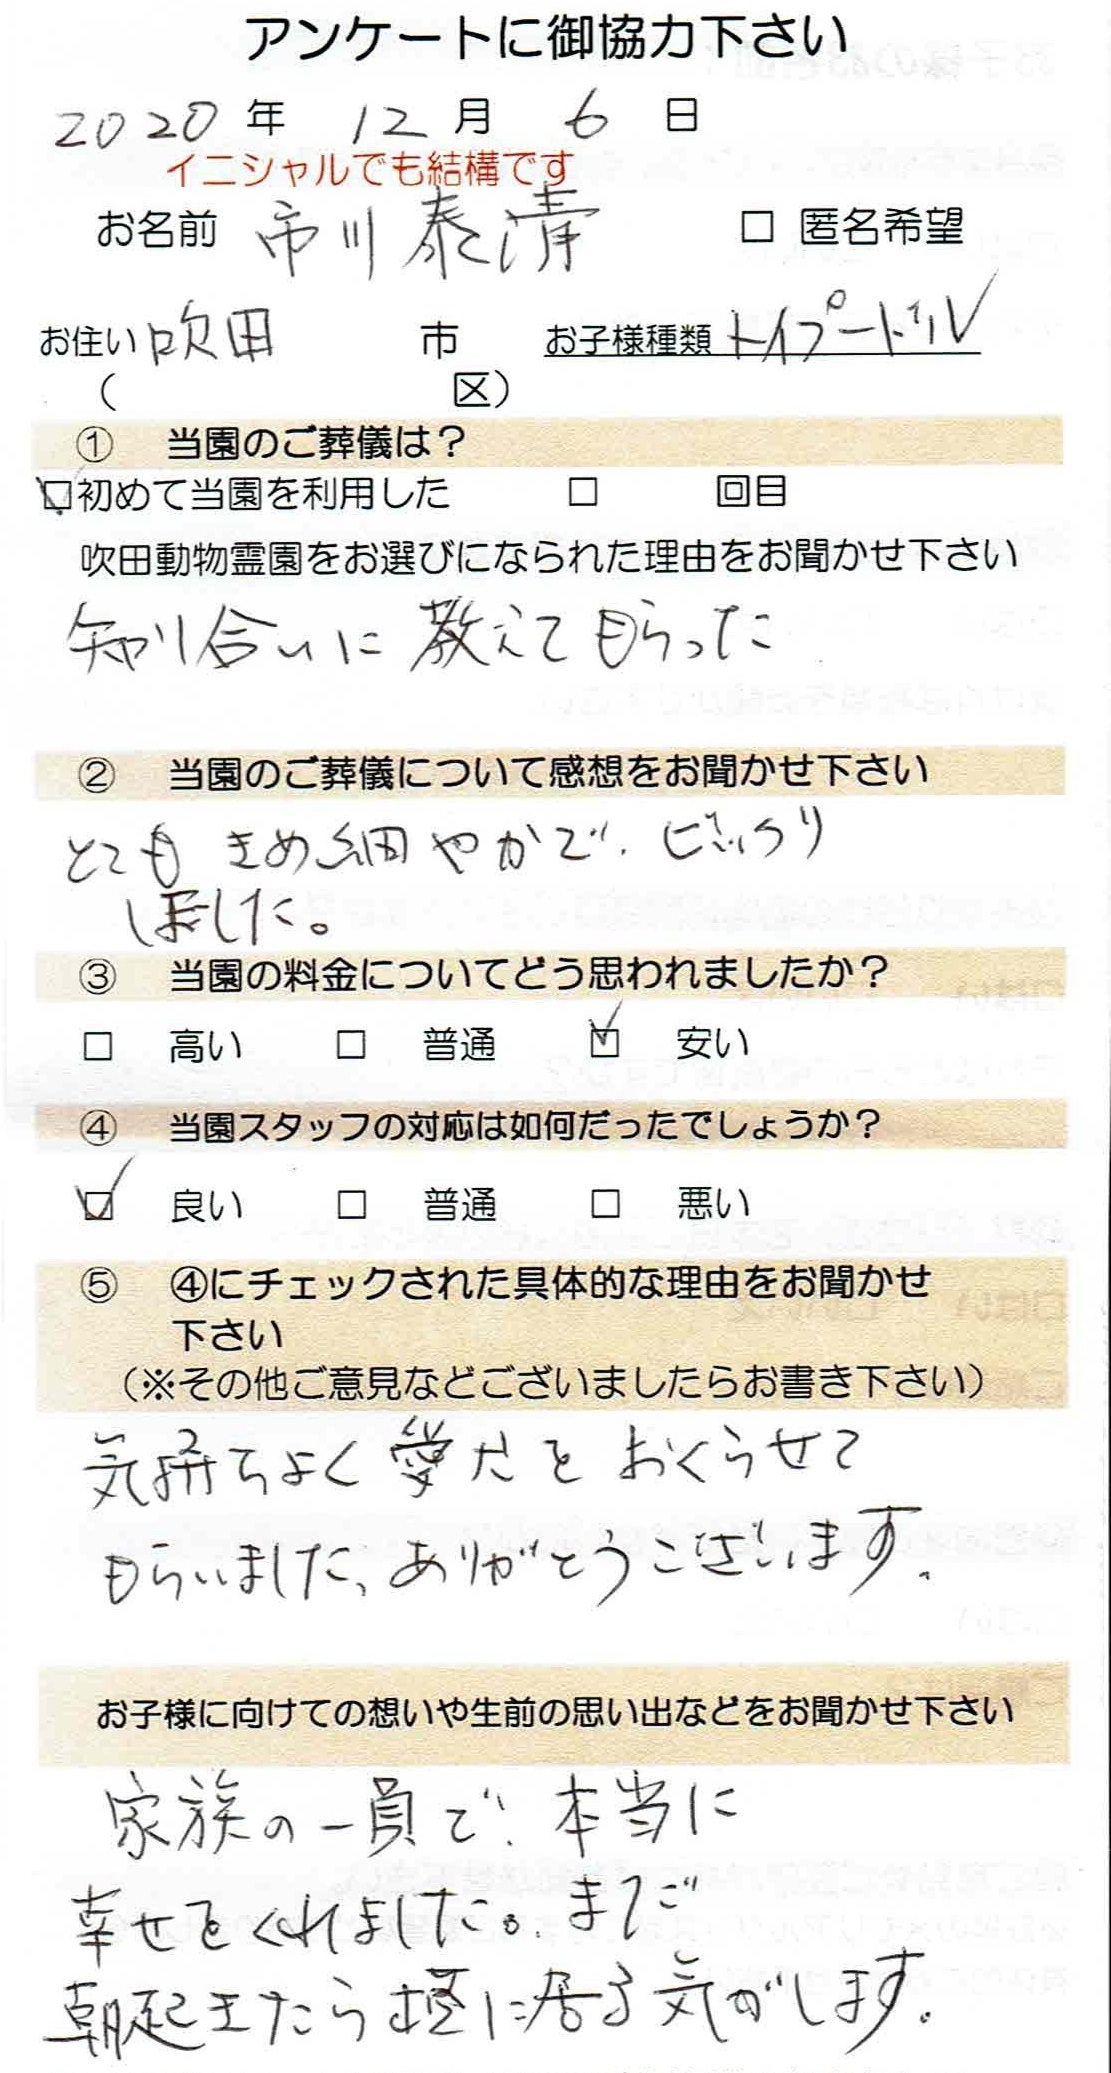 アンケートに御協力下さい
2020年 12月 6日
イニシャルでも結構です
お名前 市川泰清 □ 匿名希望
お住い 吹田 市 お子様種類 トイプードル
( 区)
① 当園のご葬儀は?
☑初めて当園を利用した □ 回目
吹田動物霊園をお選びになられた理由をお聞かせ下さい
知り合いに教えてもらった
② 当園のご葬儀について感想をお聞かせ下さい
とてもきめ細やかで、ビックリ
しました。
③ 当園の料金についてどう思われましたか?
□ 高い □ 普通 ☑ 安い
④ 当園スタッフの対応は如何だったでしょうか?
☑ 良い □ 普通 □ 悪い
⑤ ④にチェックされた具体的な理由をお聞かせ
下さい
(※その他ご意見などございましたらお書き下さい)
気持ちよく愛犬をおくらせて
もらいました、ありがとうございます。
お子様に向けての想いや生前の思い出などをお聞かせ下さい
家族の一員で、本当に
幸せをくれました。まだ
朝起きたら横に居る気がします。